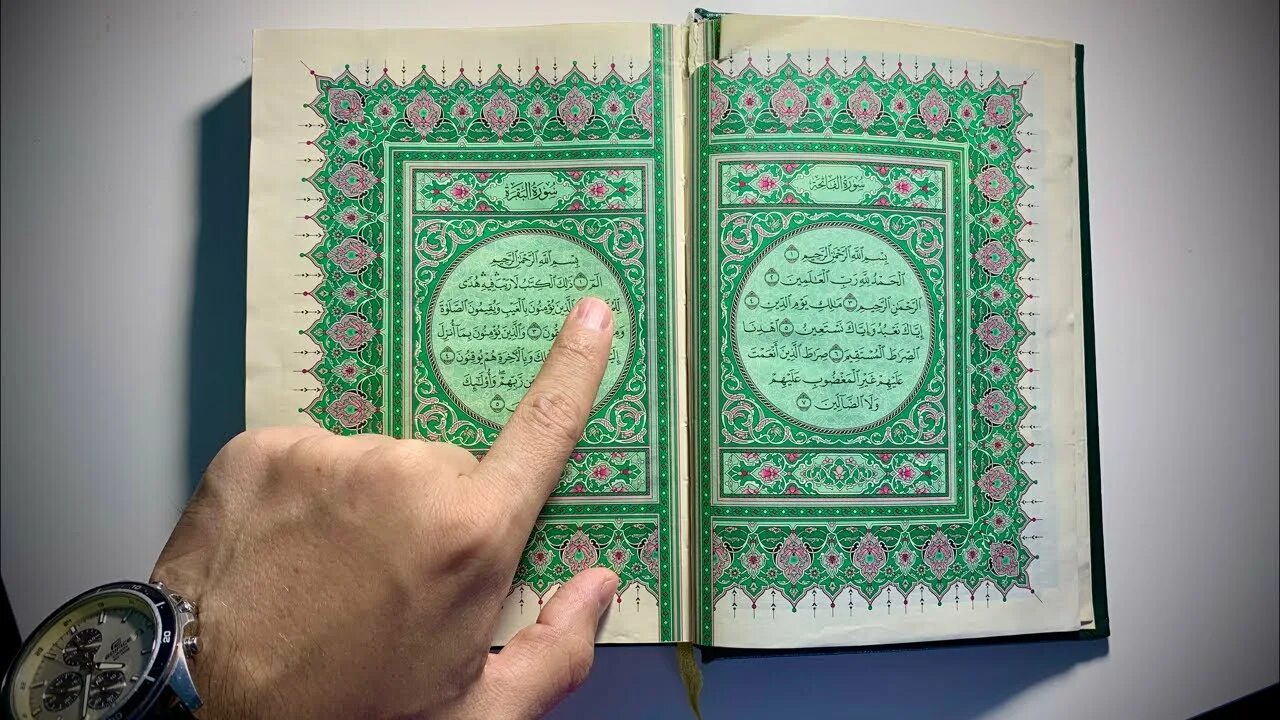 سُورَةُ الْفَاتِحَةِ
بِسْمِ ٱللَّهِ ٱلرَّحْمَٰنِ ٱلرَّحِيمِ ١
ٱلْحَمْدُ لِلَّهِ رَبِّ ٱلْعَٰلَمِينَ ٢
ٱلرَّحْمَٰنِ ٱلرَّحِيمِ ٣ مَٰلِكِ يَوْمِ ٱلدِّينِ ٤
إِيَّاكَ نَعْبُدُ وَإِيَّاكَ نَسْتَعِينُ ٥ ٱهْدِنَا
ٱلصِّرَٰطَ ٱلْمُسْتَقِيمَ ٦ صِرَٰطَ ٱلَّذِينَ أَنْعَمْتَ
عَلَيْهِمْ غَيْرِ ٱلْمَغْضُوبِ عَلَيْهِمْ
وَلَا ٱلضَّآلِّينَ ٧
سُورَةُ الْبَقَرَةِ
بِسْمِ ٱللَّهِ ٱلرَّحْمَٰنِ ٱلرَّحِيمِ
الٓمٓ ١ ذَٰلِكَ ٱلْكِتَٰبُ لَا رَيْبَ فِيهِ هُدًى
يُؤْمِنُونَ بِٱلْغَيْبِ وَيُقِيمُونَ ٱلصَّلَوٰةَ
٣ وَٱلَّذِينَ يُؤْمِنُونَ بِمَآ أُنزِلَ
وَبِٱلْءَاخِرَةِ هُمْ يُوقِنُونَ ٤
رَّبِّهِمْ وَأُو۟لَٰٓئِكَ
٥
20